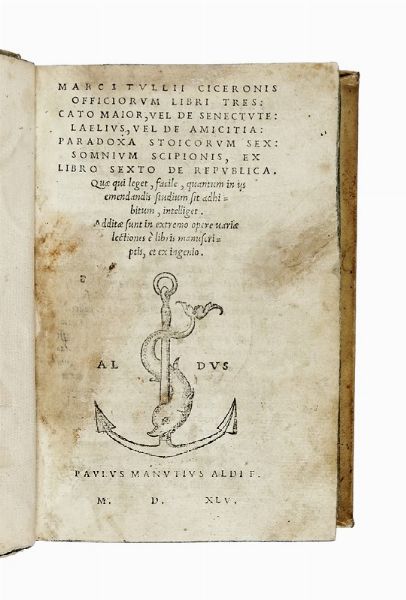 MARCI TVLLII CICERONIS
OFFICIORVM LIBRI TRES:
CATO MAIOR, VEL DE SENECTVTE:
LAELIVS, VEL DE AMICITIA:
PARADOXA STOICORVM SEX:
SOMNIVM SCIPIONIS, EX
LIBRO SEXTO DE REPVBLICA.
Quæ qui leget, facile, quantum in ijs
emendandis studium sit adhi-
bitum, intelliget.
Additæ sunt in extremo opere uariæ
lectiones è libris manuscri-
ptis, et ex ingenio.
AL DVS
PAVLVS MANVTIVS ALDI F.
M. D. XLV.